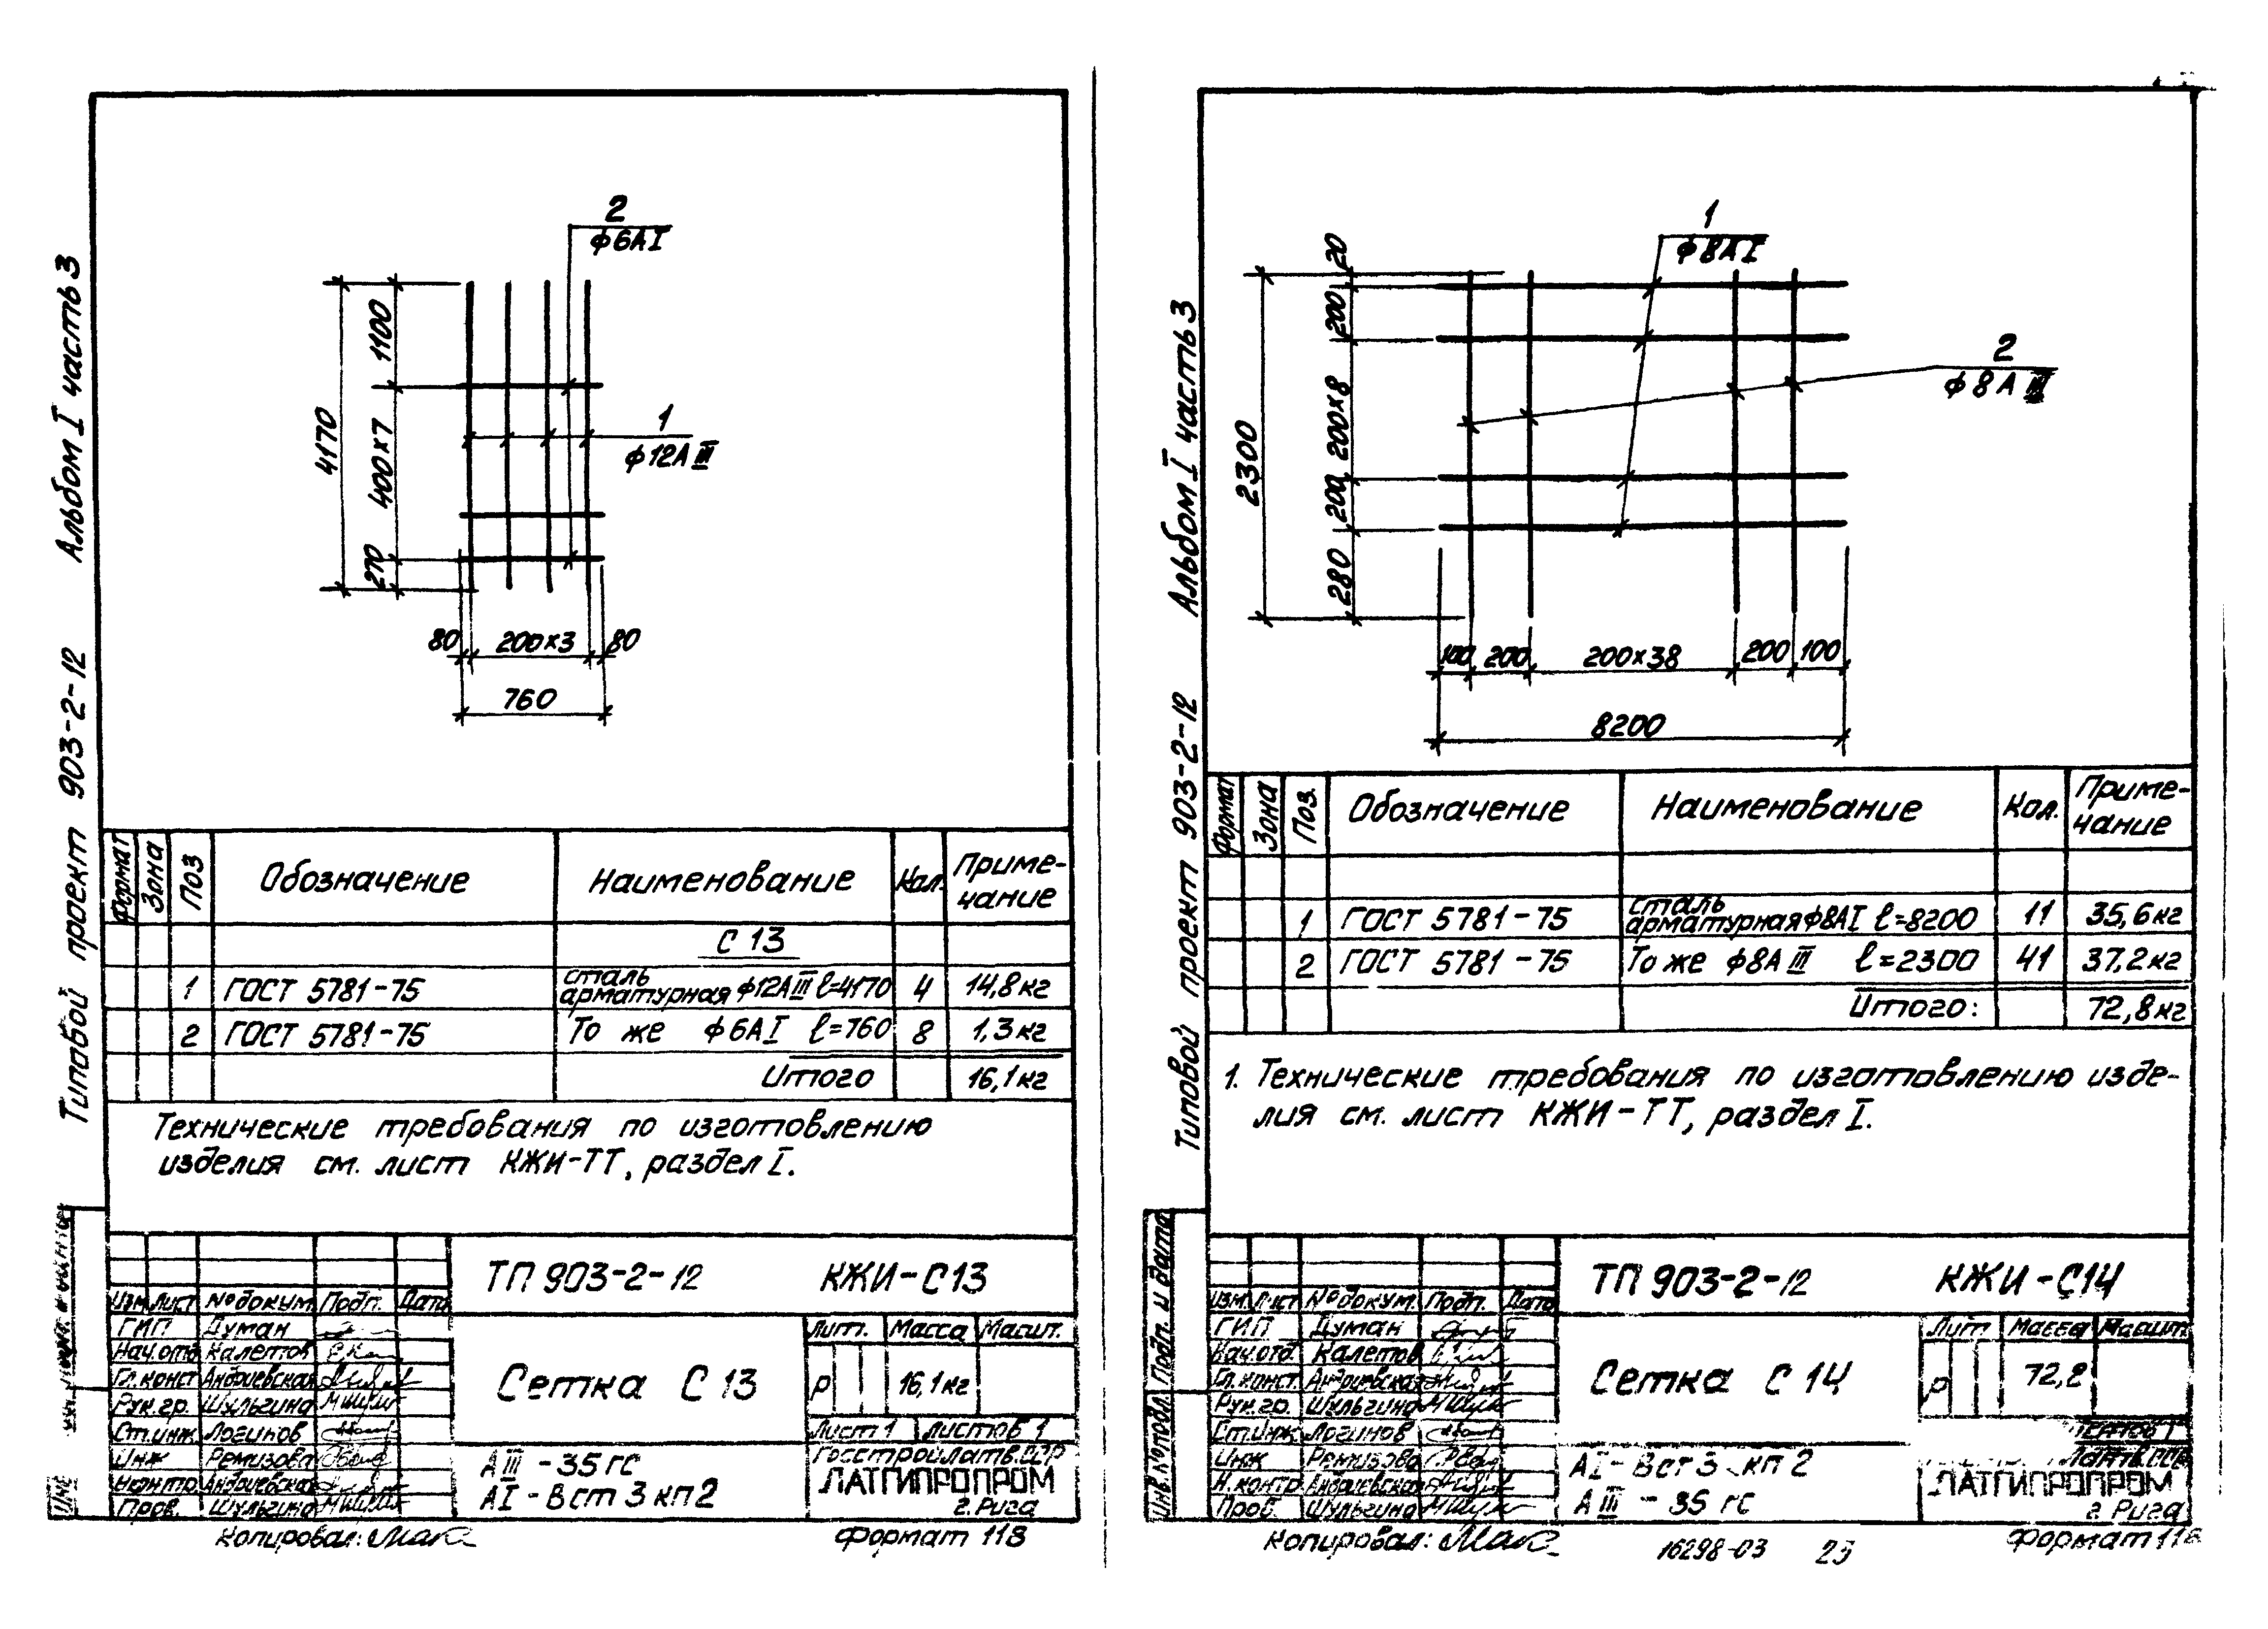 Типовой проект 903-2-12 Альбом I часть 3
2
ф6АI
1
ф12АIII
4170
1100
400×7
270
80 200×3 80
760
Формат Зона Поз Обозначение Наименование Кол. Приме-
чание
С 13
1 ГОСТ 5781-75 сталь
арматурная ф12АIII ℓ=4170 4 14,8кг
2 ГОСТ 5781-75 То же ф6АI ℓ=760 8 1,3кг
Итого 16,1кг
Технические требования по изготовлению
изделия см. лист КЖИ-ТТ, раздел I.
ТП 903-2-12 КЖИ-С13
Изм. Лист № докум. Подп. Дата
ГИП Думан
Нач.отд Калетов
Гл.конст Андриевская
Рук.гр. Шульгина
Ст.инж. Логинов
Инж Ремизова
Н.контр. Андриевская
Пров. Шульгина
Сетка С 13
Лит. Масса Масшт.
Р 16,1кг
Лист 1 Листов 1
АIII - 35 гс
АI - Вст 3 кп 2
Госстрой латв. ССР
ЛАТГИПРОПРОМ
г. Рига
Копировал: Формат 11в
Типовой проект 903-2-12 Альбом I часть 3
1
ф8АI
2
ф8АIII
2300
20
200
200×8
200
280
100 200 200×38 200 100
8200
Формат Зона Поз. Обозначение Наименование Кол. Приме-
чание
1 ГОСТ 5781-75 сталь
арматурная ф8АI ℓ=8200 11 35,6кг
2 ГОСТ 5781-75 То же ф8АIII ℓ=2300 41 37,2кг
Итого: 72,8кг
1. Технические требования по изготовлению изде-
лия см. лист КЖИ-ТТ, раздел I.
Инв.№ подл. Подп. и дата
ТП 903-2-12 КЖИ-С14
Изм. Лист № докум. Подп. Дата
ГИП Думан
Нач.отд. Калетов
Гл.конст. Андриевская
Рук.гр. Шульгина
Ст.инж Логинов
Инж Ремизова
Н.контр Андриевская
Пров. Шульгина
Сетка С 14
Лит Масса Масшт.
Р 72,8
Листов 1
АI - Вст 3 кп 2
АIII - 35 гс
Латв. ССР
ЛАТГИПРОПРОМ
г. Рига
Копировал: 16298-03 25 Формат 11в